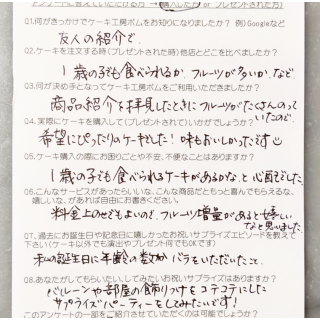 アンケートに答えていただける方 → (購入した方 or プレゼントされた方)
01.何がきっかけでケーキ工房ボムをお知りになりましたか？ 例)Googleなど
友人の紹介で
02.ケーキを注文する時(プレゼントされた時)他店とどこを比べましたか？
1歳の子でも食べられるか、フルーツが多いか、など
03.何が決め手となってケーキ工房ボムをご利用いただきましたか？
商品紹介を拝見したときにフルーツがたくさんのって
いたので
04.実際にケーキを購入して(プレゼントされて)いかがでしょうか？
希望にぴったりのケーキでした！味もおいしかったです
05.ケーキ購入の際にお困りごとや不安、不便なことはありますか？
1歳の子でも食べられるケーキがあるかな、と心配でした
06.こんなサービスがあったらいいな、こんな商品だともっと喜んでもらえるな、
嬉しいな、があれば自由にお書きください。
料金上のせでもよいので、フルーツ増量があると嬉しい
なと思いました
07.過去にお誕生日や記念日に嬉しかったお祝いサプライズエピソードを教えて
下さい(ケーキ以外でも演出やプレゼント何でもOKです)
私の誕生日に年齢の数だけバラをいただいたこと
08.あなたがしてもらいたい、してみたいお祝いサプライズはありますか？
バルーンや部屋の飾りつけをコテコテにした
サプライズパーティーをしてみたいです！
このアンケートの一部をご紹介させていただくのは可能でしょうか？